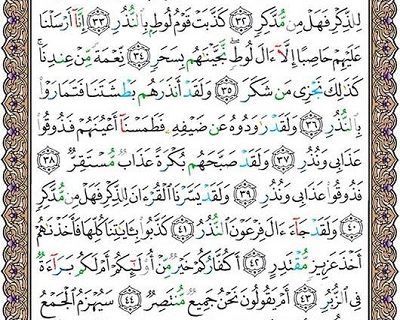 لِلذِّكْرِ فَهَلْ مِن مُّدَّكِرٍ ﴿٣٢﴾ كَذَّبَتْ قَوْمُ لُوطٍۭ بِٱلنُّذُرِ ﴿٣٣﴾ إِنَّآ أَرْسَلْنَا
عَلَيْهِمْ حَاصِبًا إِلَّآ ءَالَ لُوطٍ ۖ نَّجَّيْنَٰهُم بِسَحَرٍ ﴿٣٤﴾ نِّعْمَةً مِّنْ عِندِنَا ۚ
كَذَٰلِكَ نَجْزِى مَن شَكَرَ ﴿٣٥﴾ وَلَقَدْ أَنذَرَهُم بَطْشَتَنَا فَتَمَارَوْا۟
بِٱلنُّذُرِ ﴿٣٦﴾ وَلَقَدْ رَٰوَدُوهُ عَن ضَيْفِهِۦ فَطَمَسْنَآ أَعْيُنَهُمْ فَذُوقُوا۟
عَذَابِى وَنُذُرِ ﴿٣٧﴾ وَلَقَدْ صَبَّحَهُم بُكْرَةً عَذَابٌ مُّسْتَقِرٌّ ﴿٣٨﴾
فَذُوقُوا۟ عَذَابِى وَنُذُرِ ﴿٣٩﴾ وَلَقَدْ يَسَّرْنَا ٱلْقُرْءَانَ لِلذِّكْرِ فَهَلْ مِن مُّدَّكِرٍ
﴿٤٠﴾ وَلَقَدْ جَآءَ ءَالَ فِرْعَوْنَ ٱلنُّذُرُ ﴿٤١﴾ كَذَّبُوا۟ بِـَٔايَٰتِنَا كُلِّهَا فَأَخَذْنَٰهُمْ
أَخْذَ عَزِيزٍ مُّقْتَدِرٍ ﴿٤٢﴾ أَكُفَّارُكُمْ خَيْرٌ مِّنْ أُو۟لَٰٓئِكُمْ أَمْ لَكُم بَرَآءَةٌ
فِى ٱلزُّبُرِ ﴿٤٣﴾ أَمْ يَقُولُونَ نَحْنُ جَمِيعٌ مُّنتَصِرٌ ﴿٤٤﴾ سَيُهْزَمُ ٱلْجَمْعُ